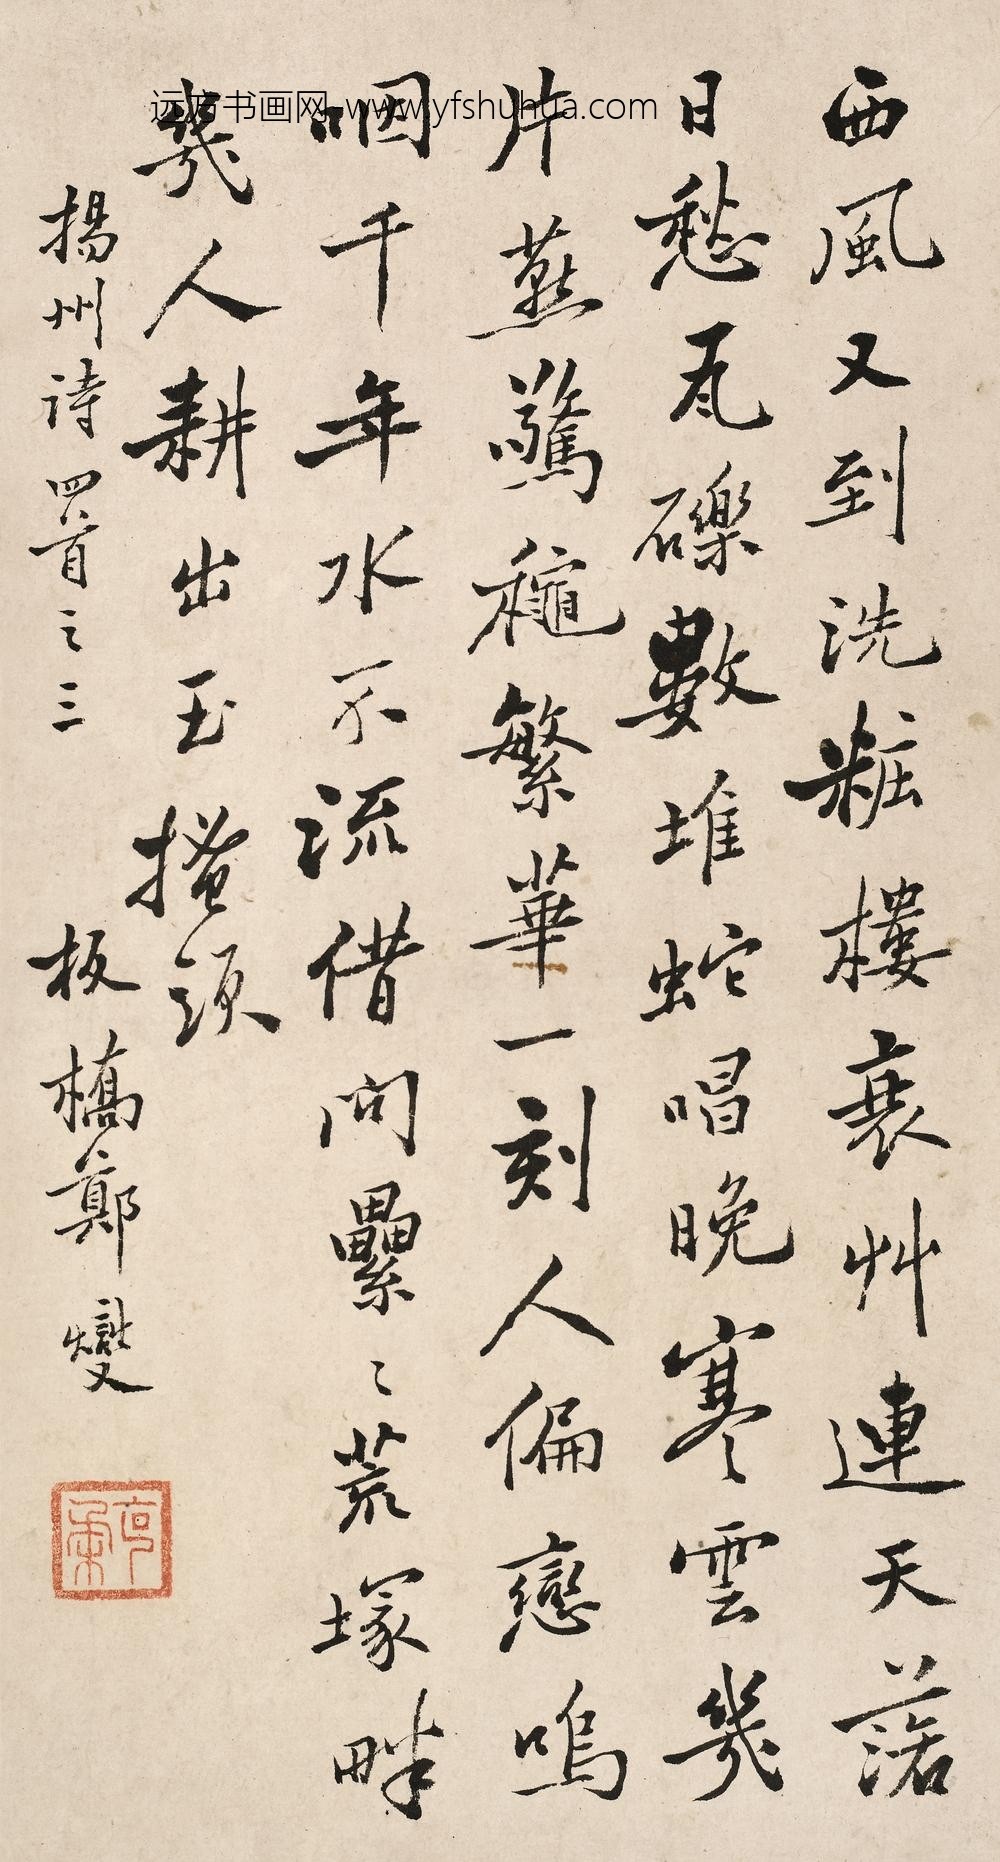 西風又到洗粧樓衰艸連天落
日愁瓦礫數堆蛇唱晚寒雲幾
片燕驚穐繁華一刻人偏戀嗚
咽千年水不流借问纍〻荒塚畔
幾人耕出玉搔頭
揚州诗四首之三
板橋鄭燮
远方书画网 www.yfshuhua.com